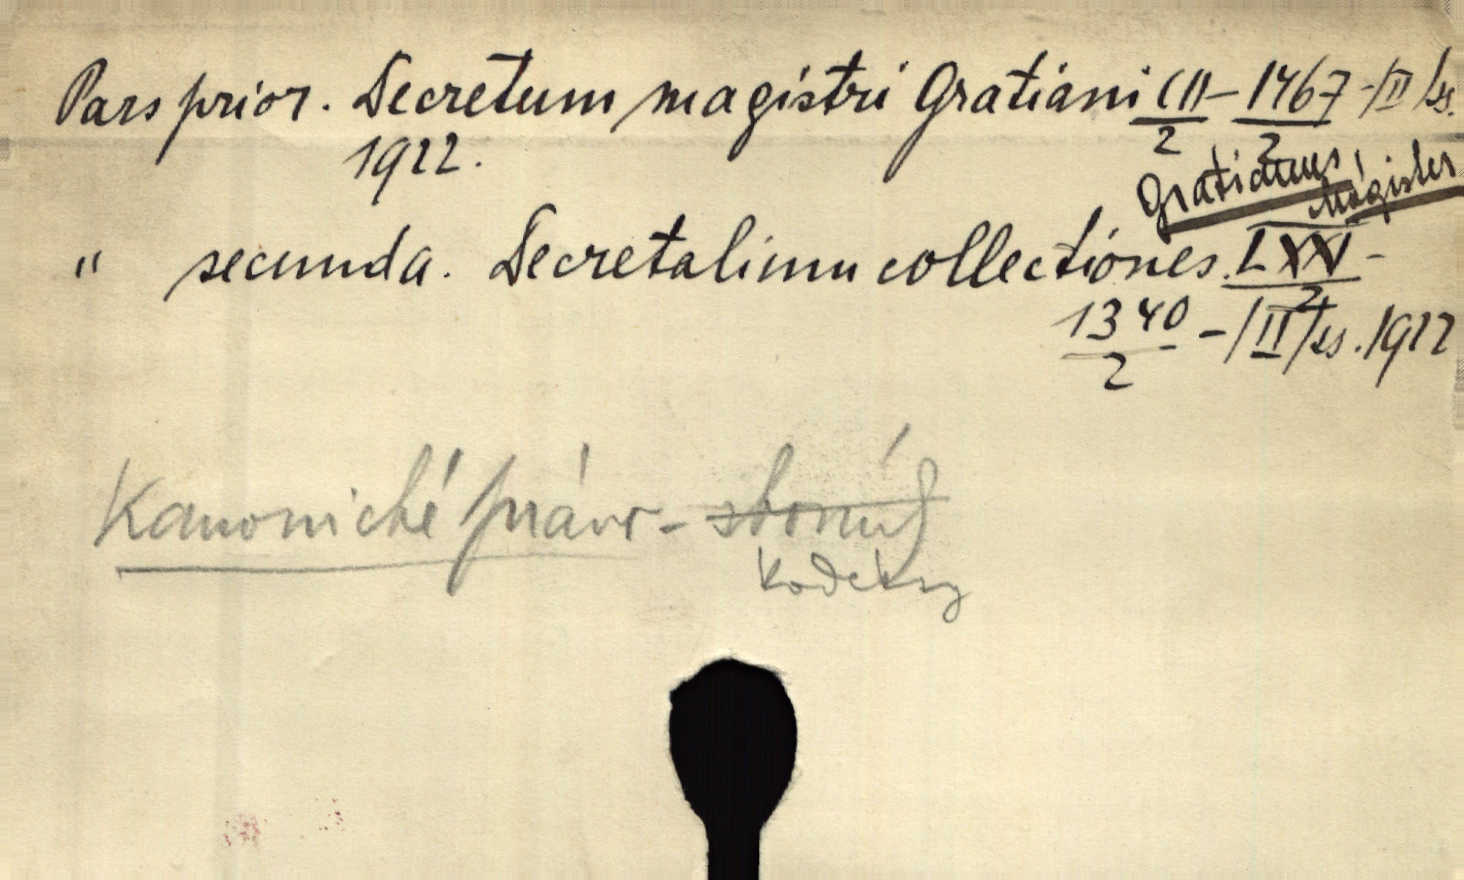 Pars prior. Decretum magistri Gratiani CII/2 - 1467/2 - /II/ ss.
1922.
Gratianus Magister
" secunda. Decretalium collectiones. LXXI/2 -
1340/2 - /II/ ss. 1922
Kanonické právo - sborníky
kodeksy